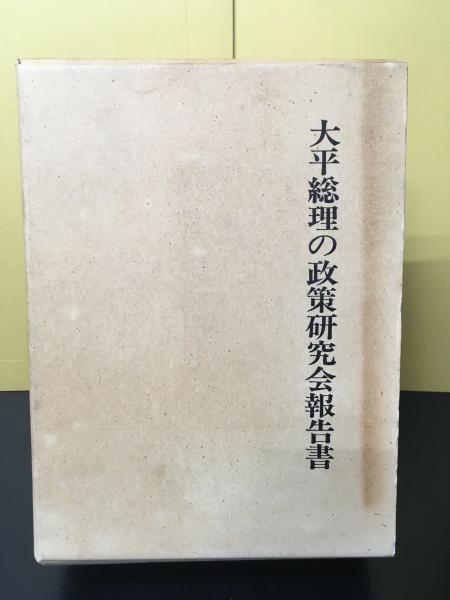 大平総理の政策研究会報告書